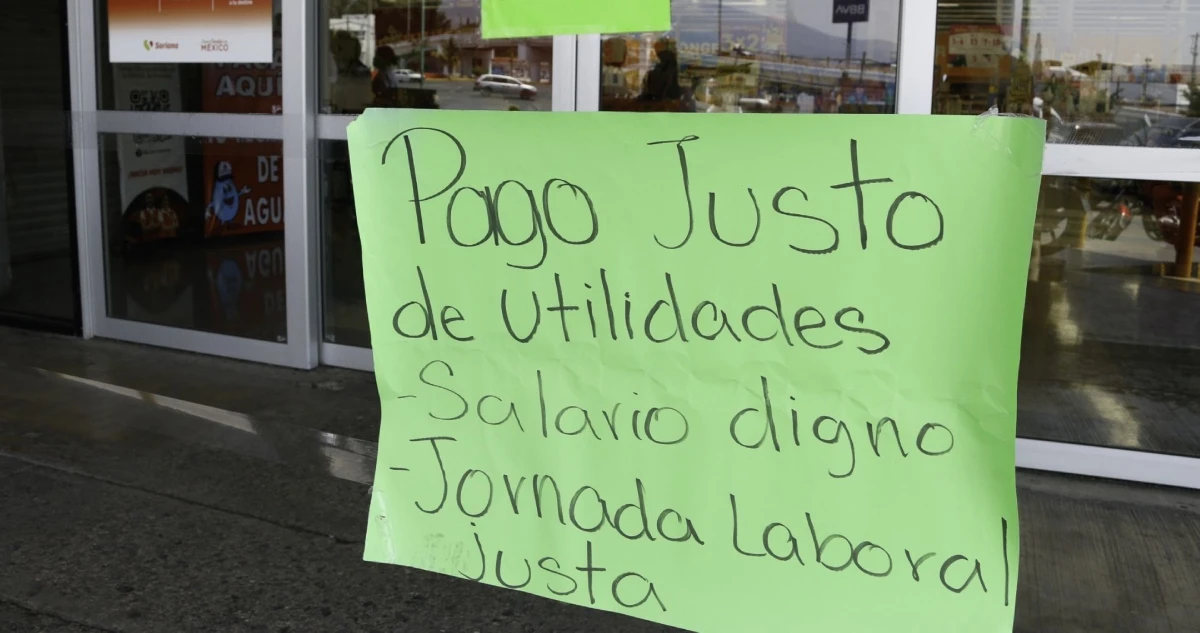 Soriana
MÉXICO
BBVA
AQUÍ
DE
AGU
Pago Justo
de utilidades
-Salario digno
-Jornada Laboral
justa